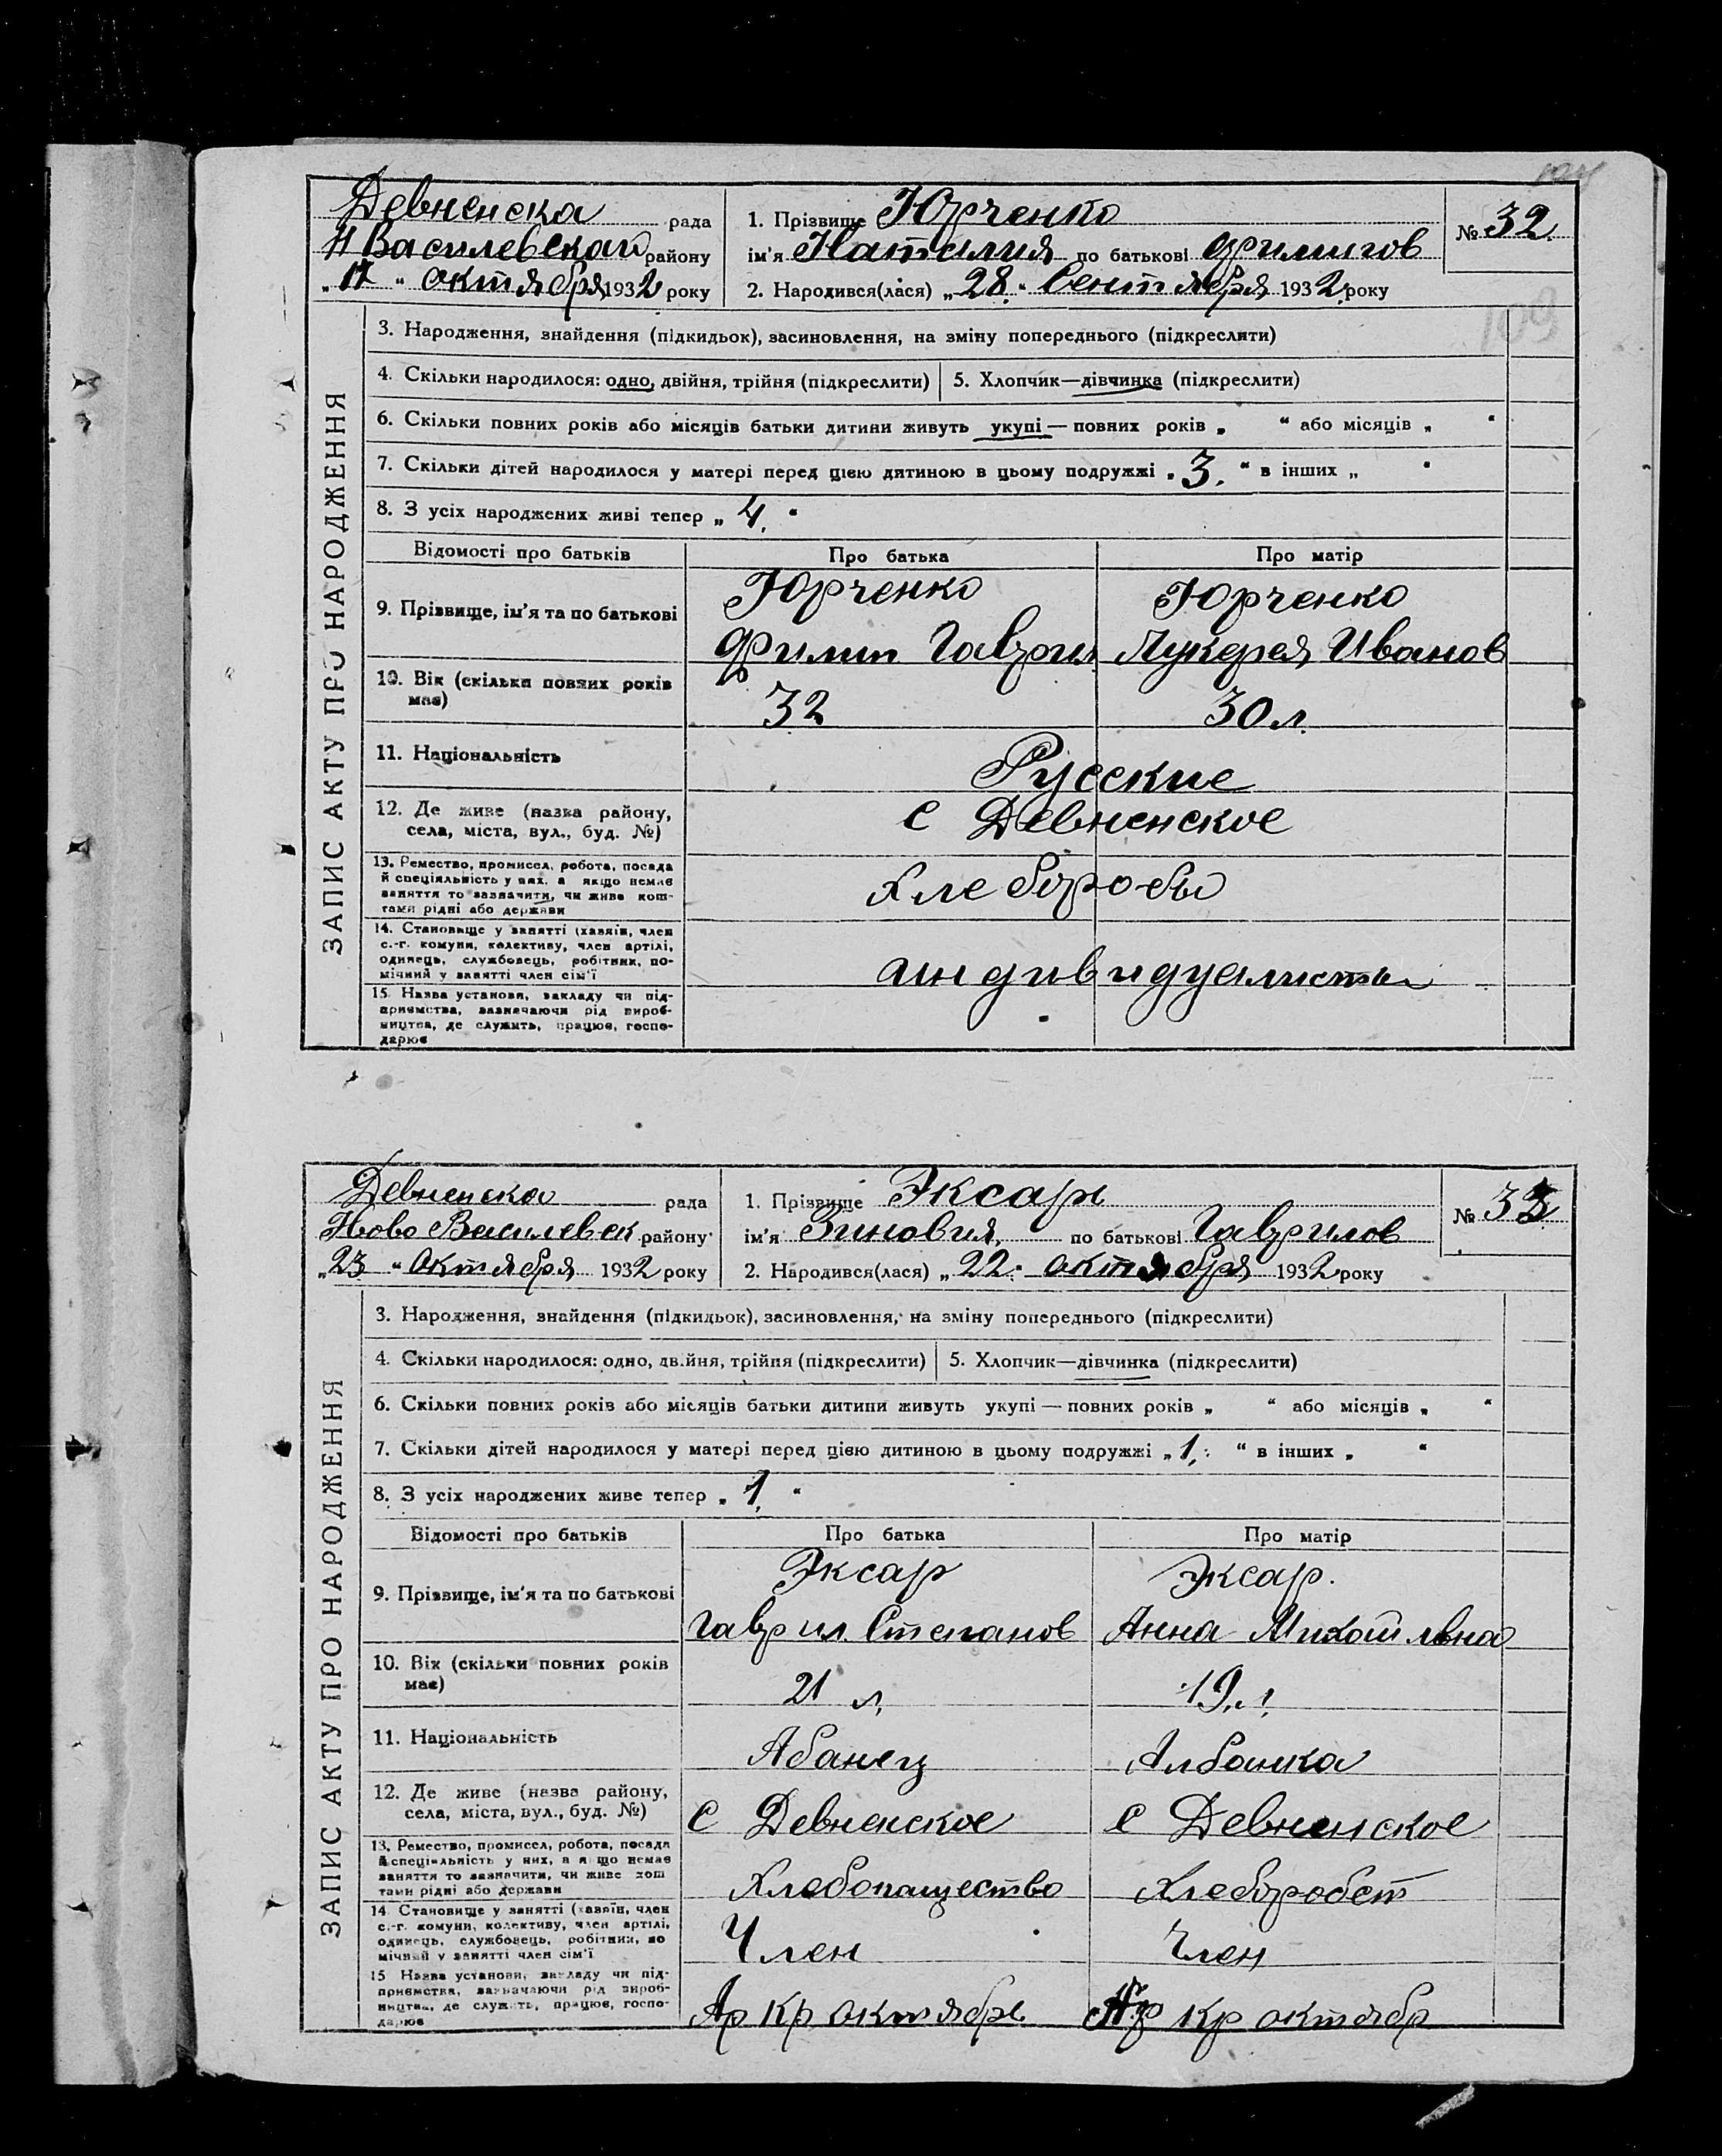 Девненска рада
Н Василевскай району
„17 “ октября 1932 року
1. Прізвище Юрченко
ім'я Наталия по батькові Филипов
2. Народився(лася) „28.“ Сентября 1932 року
№ 32.
109
ЗАПИС АКТУ ПРО НАРОДЖЕННЯ
3. Народження, знайдення (підкидьок), засиновлення, на зміну попереднього (підкреслити)
4. Скільки народилося: одно, двійня, трійня (підкреслити) 5. Хлопчик—дівчинка (підкреслити)
6. Скільки повних років або місяців батьки дитини живуть укупі — повних років „ “ або місяців „ “
7. Скільки дітей народилося у матері перед цією дитиною в цьому подружжі „3.“ в інших „ “
8. З усіх народжених живі тепер „4.“
Відомості про батьків Про батька Про матір
9. Прізвище, ім'я та по батькові
Юрченко Юрченко
Филип Гаврил Лукерея Иванов
10. Вік (скільки повних років
має)
32 30 л.
11. Національність
Русские
12. Де живе (назва району,
села, міста, вул., буд. №)
с Девненское
13. Ремество, промисел, робота, посада
й спеціяльність у них, а якщо немає
заняття то зазначити, чи живе кош-
тами рідні або держави
Хлеборобы
14. Становище у занятті (хазяїн, член
с.-г. комуни, колективу, член артілі,
одинець, службовець, робітник, по-
мічний у занятті член сім'ї
индивидуалисты
15. Назва установи, закладу чи під-
приємства, зазначаючи рід вироб-
ництва, де служить, працює, госпо-
дарює
Девненска рада
Ново Василевск району
„23 “ Октября 1932 року
1. Прізвище Эксарь
ім'я Зиновия, по батькові Гаврилов
2. Народився(лася) „22.“ октября 1932 року
№ 33
ЗАПИС АКТУ ПРО НАРОДЖЕННЯ
3. Народження, знайдення (підкидьок), засиновлення, на зміну попереднього (підкреслити)
4. Скільки народилося: одно, двійня, трійня (підкреслити) 5. Хлопчик—дівчинка (підкреслити)
6. Скільки повних років або місяців батьки дитини живуть укупі — повних років „ “ або місяців „ “
7. Скільки дітей народилося у матері перед цією дитиною в цьому подружжі „1.“ в інших „ “
8. З усіх народжених живе тепер „1.“
Відомості про батьків Про батька Про матір
9. Прізвище, ім'я та по батькові
Эксар Эксар.
Гаврил Степанов Анна Михайльвна
10. Вік (скільки повних років
має)
21 л. 19 л.
11. Національність
Абанец Албанка
12. Де живе (назва району,
села, міста, вул., буд. №)
с Девненское с Девненское
13. Ремество, промисел, робота, посада
й спеціяльність у них, а якщо немає
заняття то зазначити, чи живе кош
тами рідні або держави
Хлебопащество Хлеборобст
14. Становище у занятті (хазяїн, член
с.-г. комуни, колективу, член артілі,
одинець, службовець, робітник, по
мічний у занятті член сім'ї
Член Член
15 Назва установи, закладу чи під-
приємства, зазначаючи рід вироб-
ництва, де служить, працює, госпо-
дарює
Ар Кр октябрь Ар Кр октябр